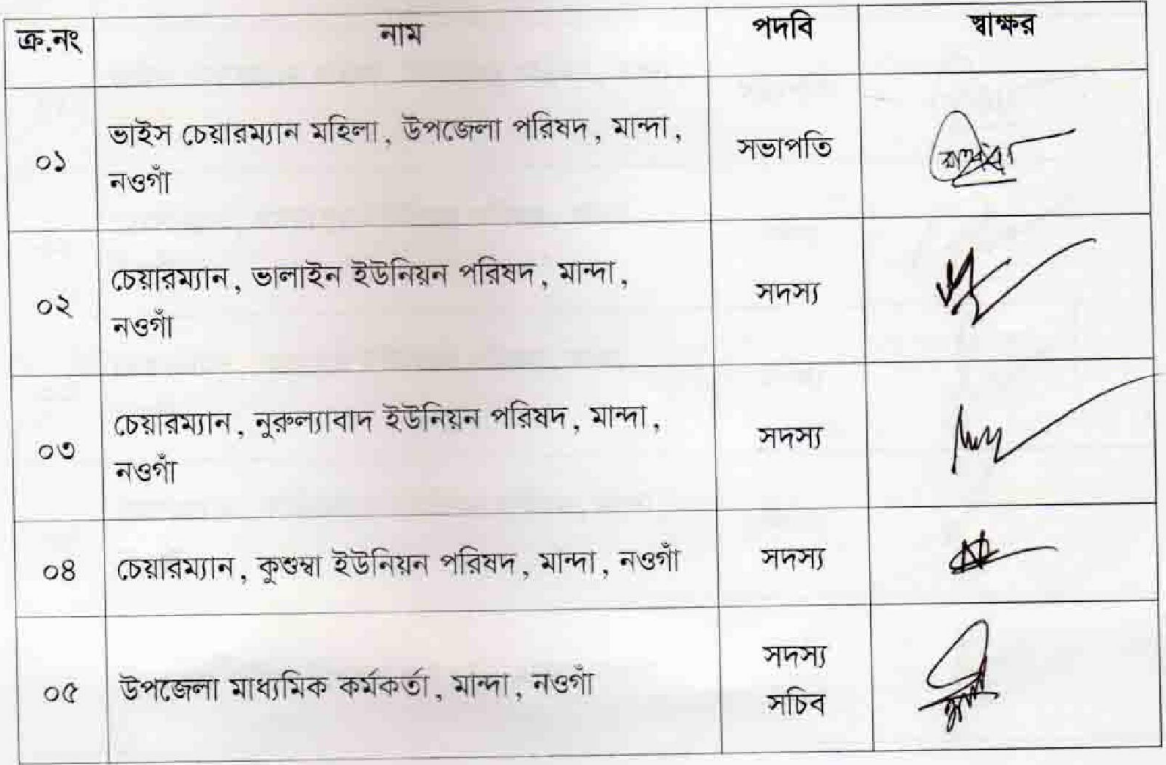 ক্র.নং নাম পদবি স্বাক্ষর
ভাইস চেয়ারম্যান মহিলা, উপজেলা পরিষদ, মান্দা,
০১ নওগাঁ সভাপতি
চেয়ারম্যান, ভালাইন ইউনিয়ন পরিষদ, মান্দা,
০২ নওগাঁ সদস্য
চেয়ারম্যান, নুরুল্যাবাদ ইউনিয়ন পরিষদ, মান্দা,
০৩ নওগাঁ সদস্য
০৪ চেয়ারম্যান, কুশুম্বা ইউনিয়ন পরিষদ, মান্দা, নওগাঁ সদস্য
০৫ উপজেলা মাধ্যমিক কর্মকর্তা, মান্দা, নওগাঁ সদস্য
সচিব